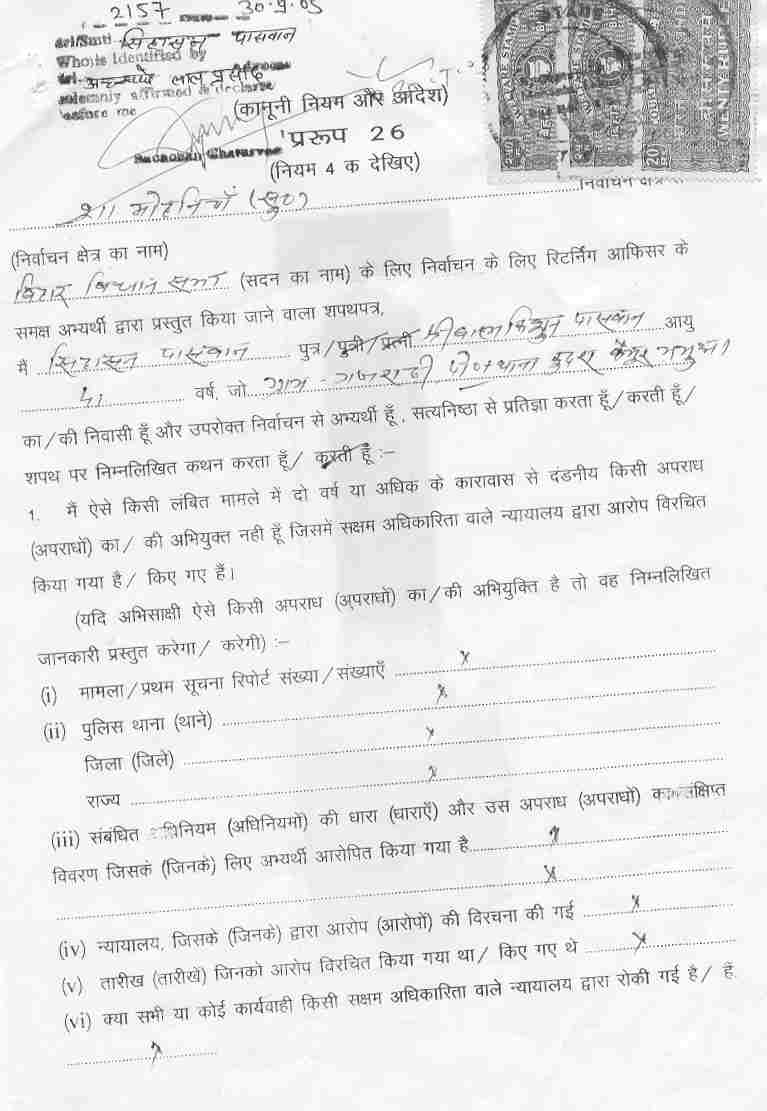 2157 30.9.05
Sri/Smti सिंहासन पासवान
Who is Identified by
Sri लाल प्रसाद
solemnly affirmed & declare
before me
(कानूनी नियम और आदेश)
प्ररूप 26
(नियम 4 क देखिए)
मोहनियाँ (सु०) निर्वाचन क्षेत्र
(निर्वाचन क्षेत्र का नाम)
बिहार विधान सभा (सदन का नाम) के लिए निर्वाचन के लिए रिटर्निंग आफिसर के
समक्ष अभ्यर्थी द्वारा प्रस्तुत किया जाने वाला शपथपत्र,
मैं सिंहासन पासवान पुत्र/पुत्री/पत्नी पासवान आयु
वर्ष, जो ग्राम - थाना कुदरा कैमूर भभुआ
का/की निवासी हूँ और उपरोक्त निर्वाचन से अभ्यर्थी हूँ, सत्यनिष्ठा से प्रतिज्ञा करता हूँ/करती हूँ/
शपथ पर निम्नलिखित कथन करता हूँ/ करती हूँ :–
1. मैं ऐसे किसी लंबित मामले में दो वर्ष या अधिक के कारावास से दंडनीय किसी अपराध
(अपराधों) का/ की अभियुक्त नही हूँ जिसमें सक्षम अधिकारिता वाले न्यायालय द्वारा आरोप विरचित
किया गया है/ किए गए हैं।
(यदि अभिसाक्षी ऐसे किसी अपराध (अपराधों) का/की अभियुक्ति है तो वह निम्नलिखित
जानकारी प्रस्तुत करेगा/ करेगी) :–
(i) मामला/प्रथम सूचना रिपोर्ट संख्या/संख्याएँ x
(ii) पुलिस थाना (थाने) x
जिला (जिले) x
राज्य x
(iii) संबंधित नियम (अधिनियमों) की धारा (धाराएँ) और उस अपराध (अपराधों) का संक्षिप्त
विवरण जिसके (जिनके) लिए अभ्यर्थी आरोपित किया गया है x
x
(iv) न्यायालय, जिसके (जिनके) द्वारा आरोप (आरोपों) की विरचना की गई x
(v) तारीख (तारीखें) जिनको आरोप विरचित किया गया था/ किए गए थे x
(vi) क्या सभी या कोई कार्यवाही किसी सक्षम अधिकारिता वाले न्यायालय द्वारा रोकी गई है/ हैं.
x